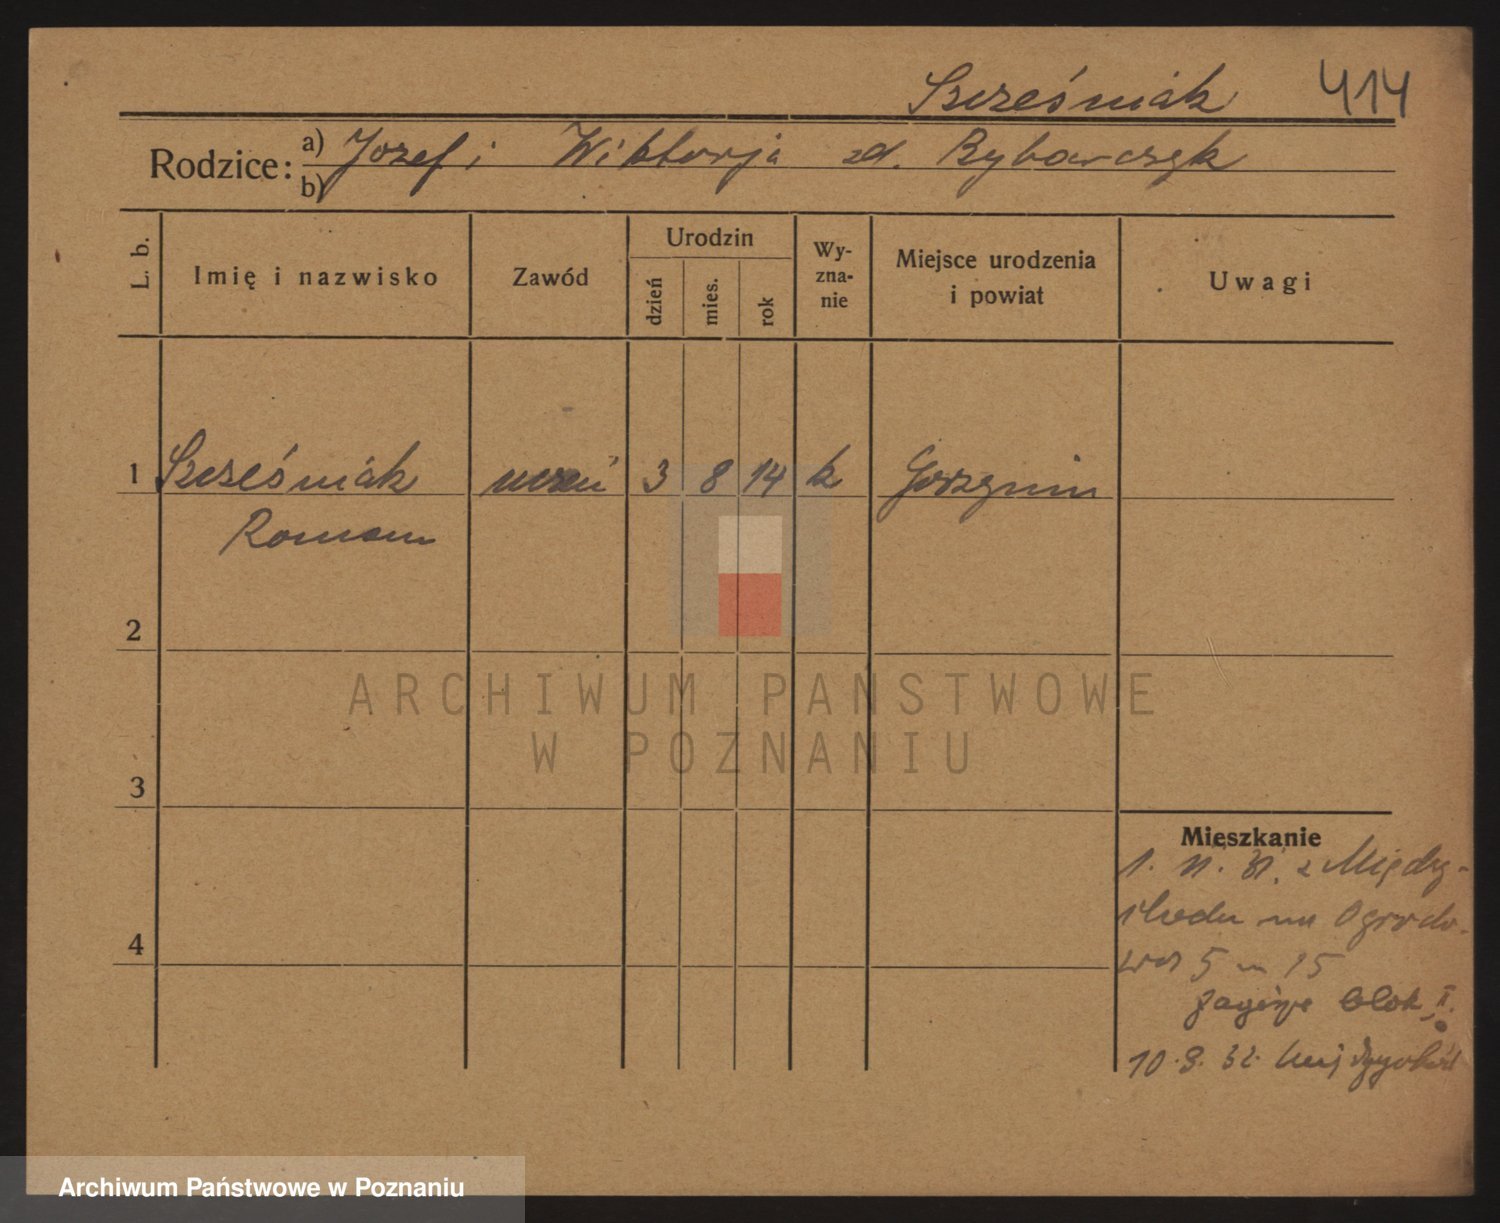 Szcześniak 414
Rodzice:
a) Jozef i Wiktorja zd. Rybarczyk
b)
L. b.
Imię i nazwisko
Zawód
Urodzin
dzień
mies.
rok
Wy-
zna-
nie
Miejsce urodzenia
i powiat
Uwagi
1 Szcześniak uczeń 3 8 14 k Gorzynin
Roman
2
ARCHIWUM PAŃSTWOWE
W POZNANIU
3
Mieszkanie
1. 11. 31. z Między-
chodu na Ogrodo-
wa 5 m 15
4
Zagórze blok II.
10.9.32.
Archiwum Państwowe w Poznaniu